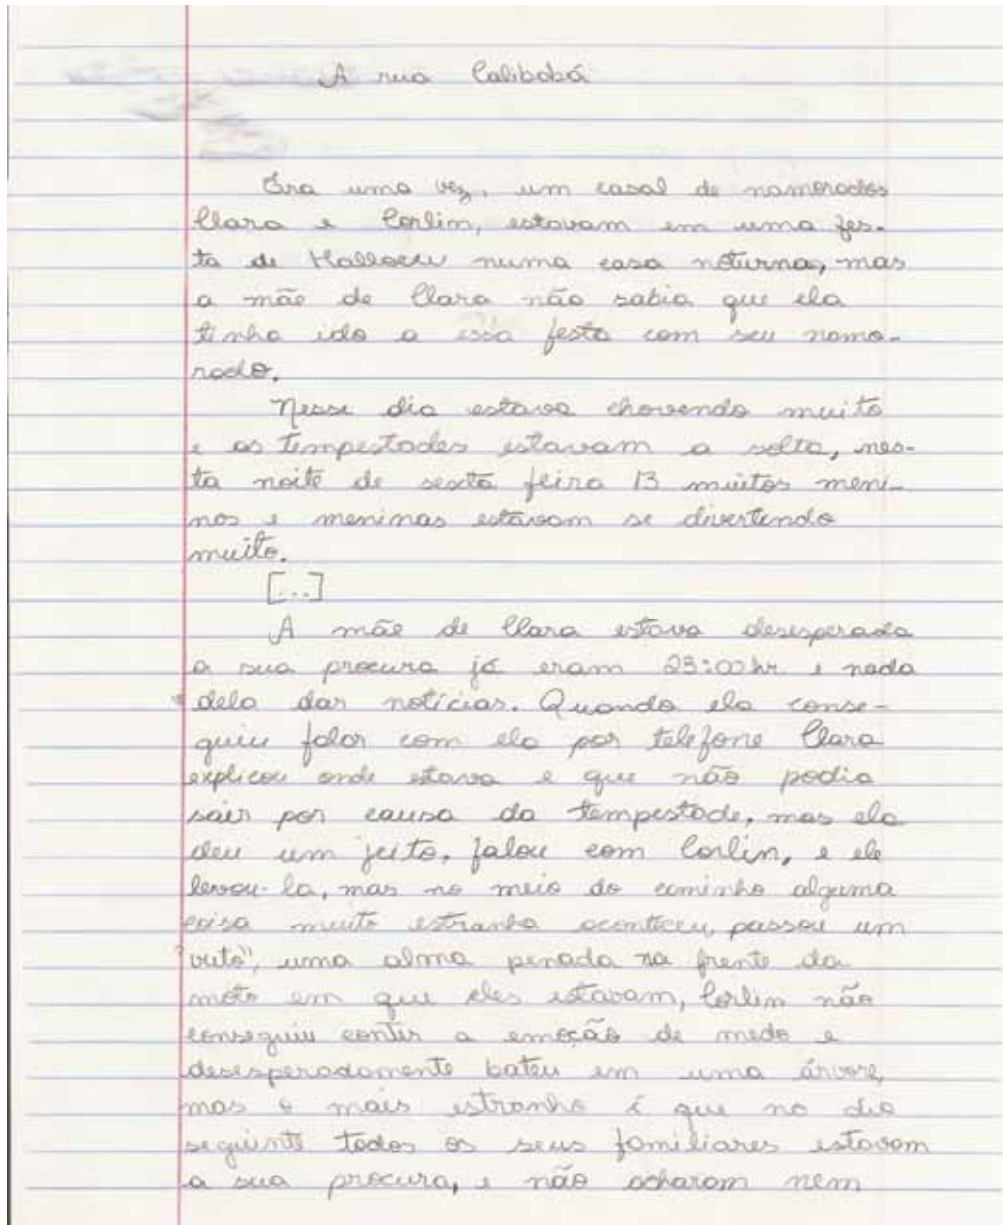 A rua Calibobá
Era uma vez, um casal de namorados
Clara e Corlim, estavam em uma fes-
ta de Halloeu numa casa noturna, mas
a mãe de Clara não sabia que ela
tinha ido a essa festa com seu namo-
rado.
Nesse dia estava chovendo muito
e as tempestades estavam a solta, nes-
ta noite de sexta feira 13 muitos meni-
nos e meninas estavam se divertindo
muito.
[...]
A mãe de Clara estava desesperada
a sua procura já eram 23:00hr e nada
dela dar notícias. Quando ela conse-
guiu falar com ela por telefone Clara
explicou onde estava e que não podia
sair por causa da tempestade, mas ela
deu um jeito, falou com Corlin, e ele
levou-la, mas no meio do caminho alguma
coisa muito estranha aconteceu, passou um
"vuto", uma alma penada na frente da
moto em que eles estavam, Corlim não
conseguiu contir a emoção de medo e
desesperadamente bateu em uma árvore,
mas o mais estranho é que no dia
seguinte todos os seus familiares estavam
a sua procura, e não acharam nem